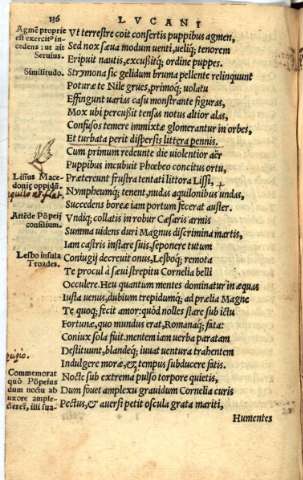 136
LVCANI
Vt terrestre coit consertis puppibus agmen,
Sed nox sæua modum uenti, ueliq; tenorem
Eripuit nautis, excußitq; ordine puppes.
Strymona sic gelidum bruma pellente relinquunt
Poturæ te Nile grues, primoq; uolatu
Effingunt uarias casu monstrante figuras,
Mox ubi percußit tensas notus altior alas,
Confusos temere immixtæ glomerantur in orbes,
Et turbata perit dispersis littera pennis.
Cum primum redeunte die uiolentior aër
Puppibus incubuit Phœbeo concitus ortu,
Prætereunt frustra tentati littora Lißi,
Nymphæumq; tenent, nudas aquilonibus undas,
Succedens boreæ iam portum fecerat auster.
Vndiq; collatis in robur Cæsaris armis
Summa uidens duri Magnus discrimina martis,
Iam castris instare suis, seponere tutum
Coniugij decreuit onus, Lesboq; remota
Te procul à sæui strepitu Cornelia belli
Occulere. Heu quantum mentes dominatur in æquas
Iusta uenus, dubium trepidumq; ad prælia Magne
Te quoq; fecit amor: quòd nolles stare sub ictu
Fortunæ, quo mundus erat, Romanaq; fata:
Coniux sola fuit. mentem iam uerba paratam
Destituunt, blandæq; iuuat uentura trahentem
Indulgere moræ, & tempus subducere fatis.
Nocte sub extrema pulso torpore quietis,
Dum fouet amplexu grauidum Cornelia curis
Pectus, & auersi petit oscula grata mariti,
Humentes
Agmē proprie
est exercitº in-
cedens: ut ait
Seruius.
Similitudo.
Lissus Mace-
donici oppidū
Antēde Pōpeij
consilium.
Lesbo insula
Troades.
Commemorat
quò Pōpeius
dum noctu ab
uxore ample-